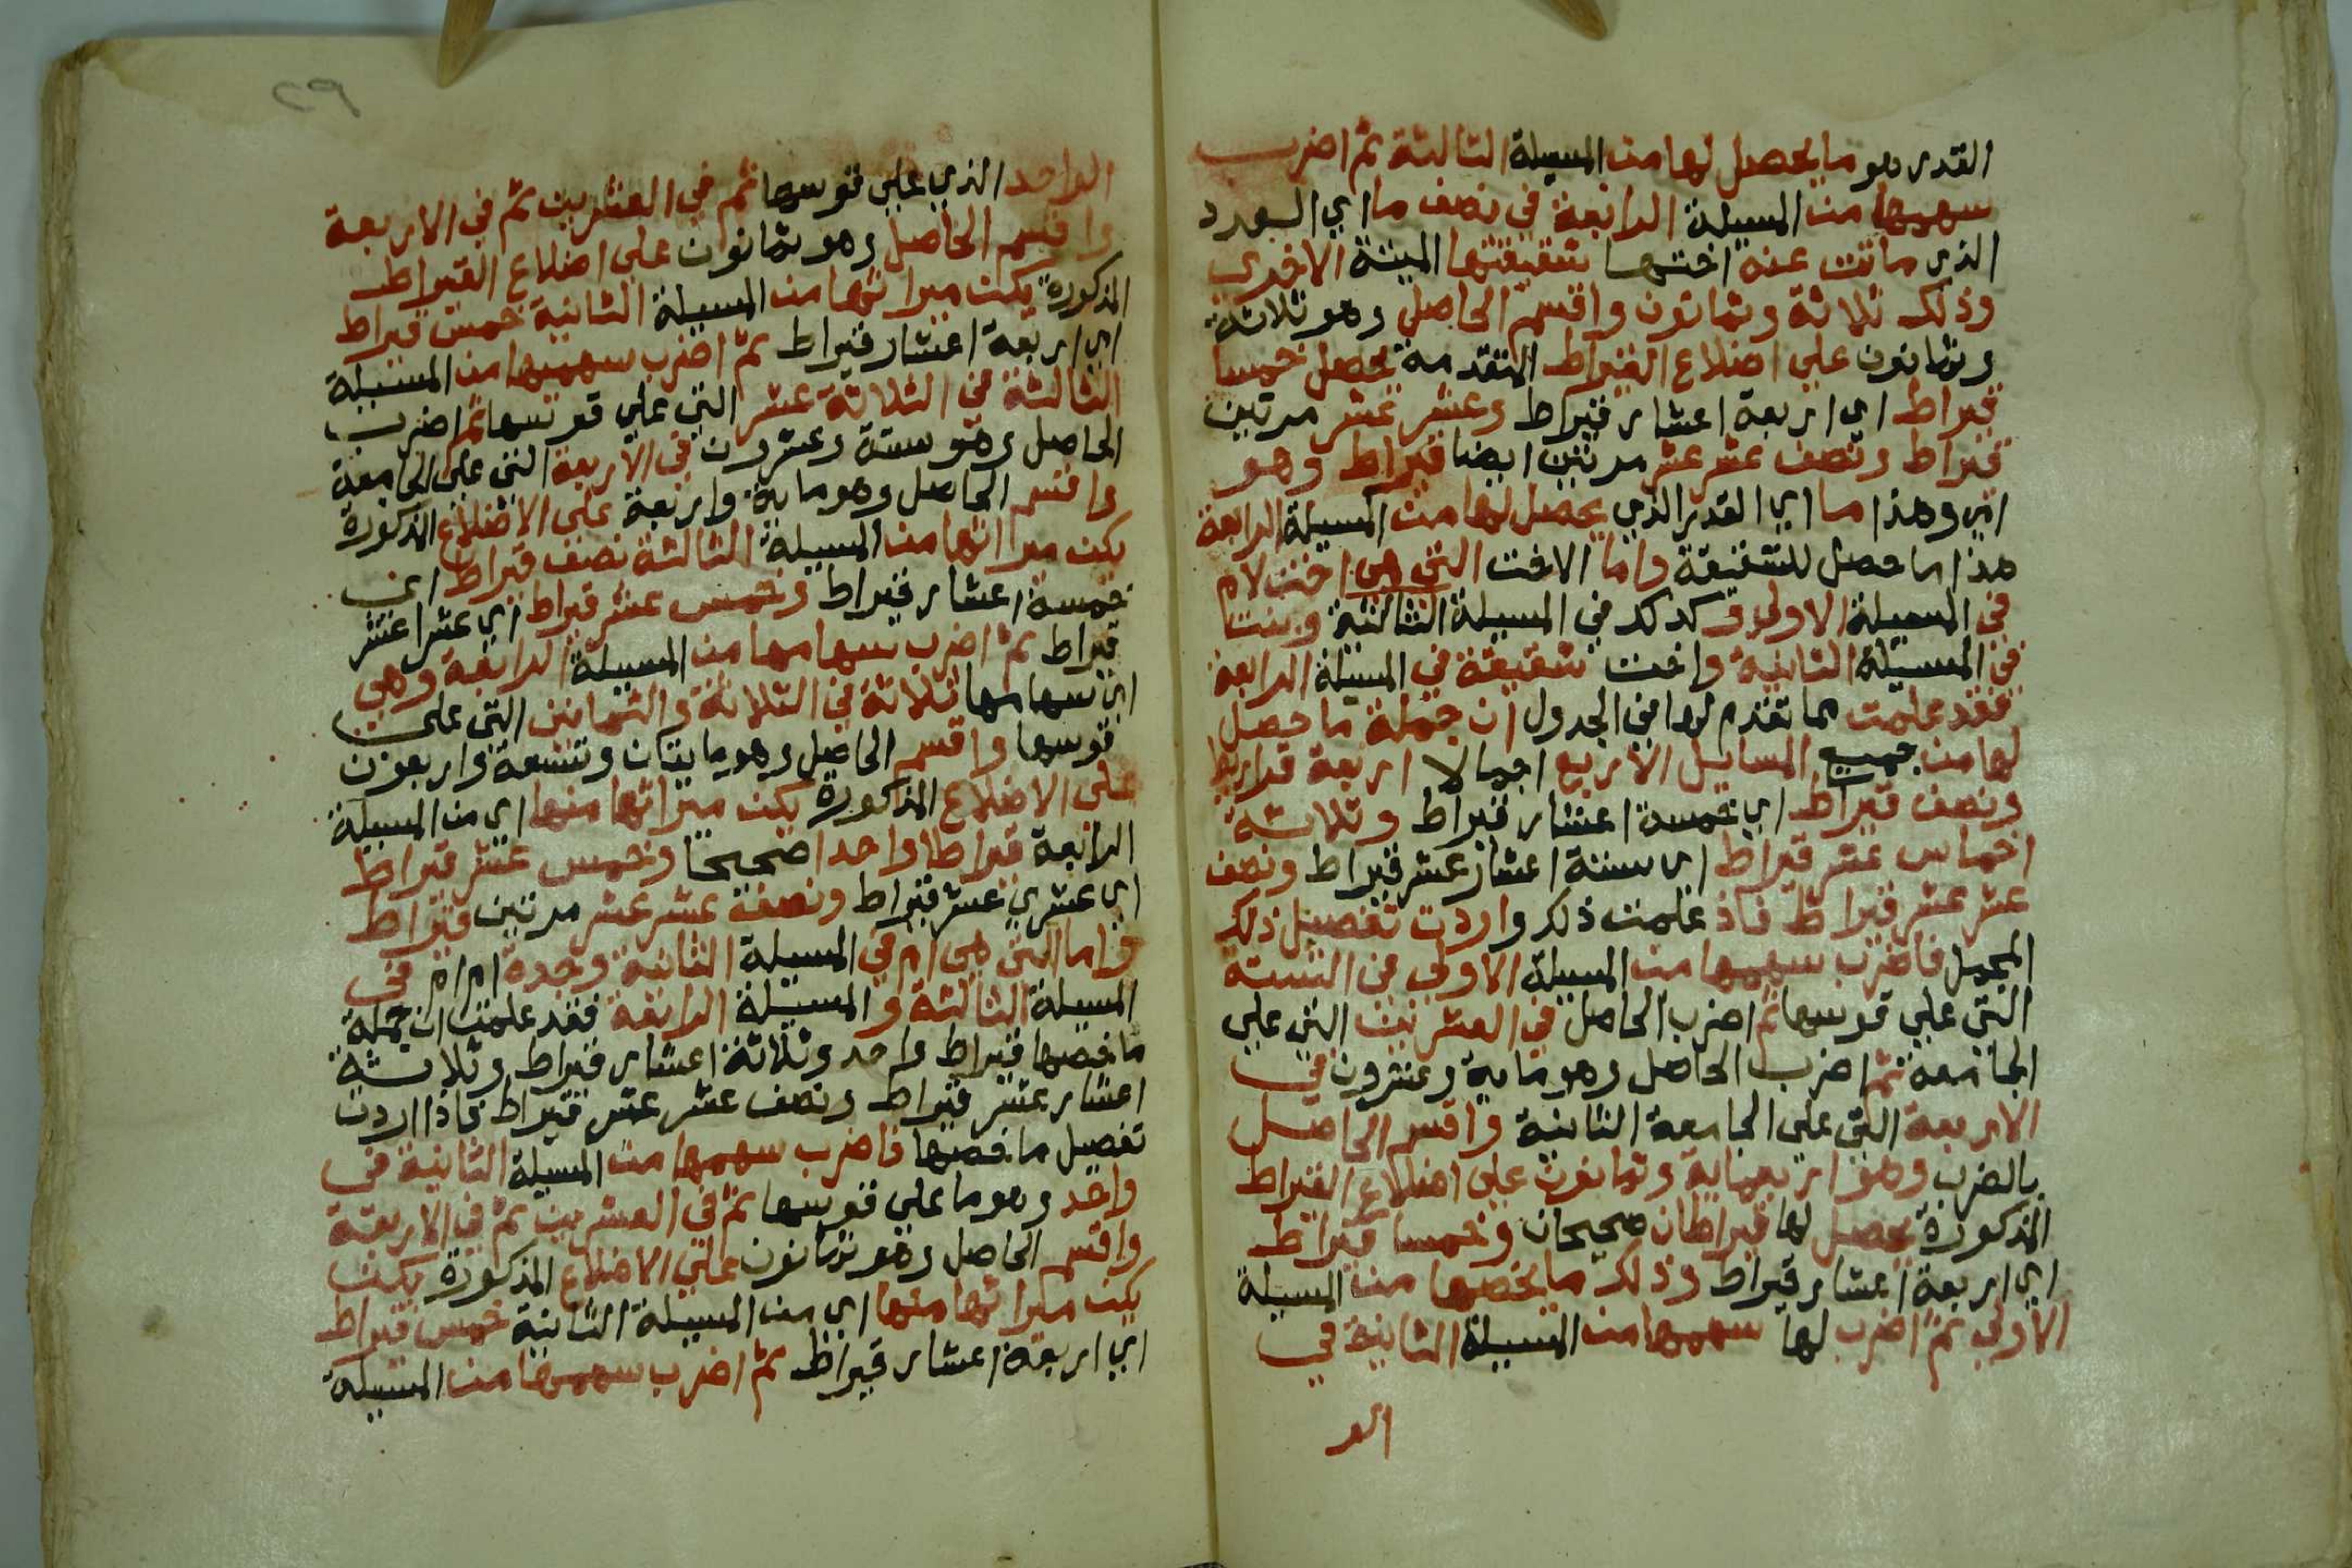 القدر هو ما يحصل لها من المسيلة الثالثة ثم اضرب
سهمها من المسيلة الرابعة في نصف ما اي العدد
الذي ماتت عنه اختها شقيقتها الميتة الاخرى
وذلك ثلاثة وثمانون واقسم الحاصل وهو ثلاثة
وثمانون على اضلاع القيراط المتقدمة يحصل خمسا
قيراط اي اربعة اعشار قيراط وعشر عشر مرتين
قيراط ونصف عشر عشر مرتين ايضا قيراط وهو
اي وهذا ما اي القدر الذي يحصل لها من المسيلة الرابعة
هذا ما حصل للشقيقة واما الاخت التي هي اخت لام
في المسيلة الاولى وكذلك في المسيلة الثالثة وبنت
في المسيلة الثانية واخت شقيقة في المسيلة الرابعة
فقد علمت مما تقدم لها في الجدول ان جملة ما حصل
لها من جميع المسايل الاربع اجمالا اربعة قراريط
ونصف قيراط اي خمسة اعشار قيراط وثلاثة
اخماس عشر قيراط اي ستة اعشار عشر قيراط ونصف
عشر عشر قيراط فاذ علمت ذلك واردت تفصيل ذلك
المجمل فاضرب سهمها من المسيلة الاولى في الستة
التي على قوسها ثم اضرب الحاصل في العشرين التي على
الجامعة ثم اضرب الحاصل وهو ماية وعشرون في
الاربعة التي على الجامعة الثانية واقسم الحاصل
بالضرب وهو اربعماية وثمانون على اضلاع القيراط
المذكورة يحصل لها قيراطان صحيحان وخمسا قيراط
اي اربعة اعشار قيراط وذلك ما يخصها من المسيلة
الاولى ثم اضرب لها سهمها من المسيلة الثانية في
الو
٢٩
الواحد الذي على قوسها ثم في العشرين ثم في الاربعة
واقسم الحاصل وهو ثمانون على اضلاع القيراط
المذكورة يكن ميراثها من المسيلة الثانية خمس قيراط
اي اربعة اعشار قيراط ثم اضرب سهميها من المسيلة
الثالثة في الثلاثة عشر التي على قوسها ثم اضرب
الحاصل وهو ستة وعشرون في الاربعة التي على الجامعة
واقسم الحاصل وهو ماية واربعة على الاضلاع المذكورة
يكن ميراثها من المسيلة الثالثة نصف قيراط اي
خمسة اعشار قيراط وخمس عشر قيراط اي عشرا عشر
قيراط ثم اضرب سهامها من المسيلة الرابعة وهي
اي سهامها ثلاثة في الثلاثة والثمانين التي على
قوسها واقسم الحاصل وهو مايتان وتسعة واربعون
على الاضلاع المذكورة يكن ميراثها منها اي من المسيلة
الرابعة قيراطا واحدا صحيحا وخمس عشر قيراط
اي عشري عشر قيراط ونصف عشر عشر مرتين قيراط
واما التي هي ام في المسيلة الثانية وجدة ام ام في
المسيلة الثالثة والمسيلة الرابعة فقد علمت ان جملة
ما خصها قيراط واحد وثلاثة اعشار قيراط وثلاثة
اعشار عشر قيراط ونصف عشر عشر قيراط فاذا اردت
تفصيل ما خصها فاضرب سهمها من المسيلة الثانية في
واحد وهو ما على قوسها ثم في العشرين ثم في الاربعة
واقسم الحاصل وهو ثمانون على الاضلاع المذكورة يكن
يكن ميراثها منها اي من المسيلة الثانية خمس قيراط
اي اربعة اعشار قيراط ثم اضرب سهمها من المسيلة